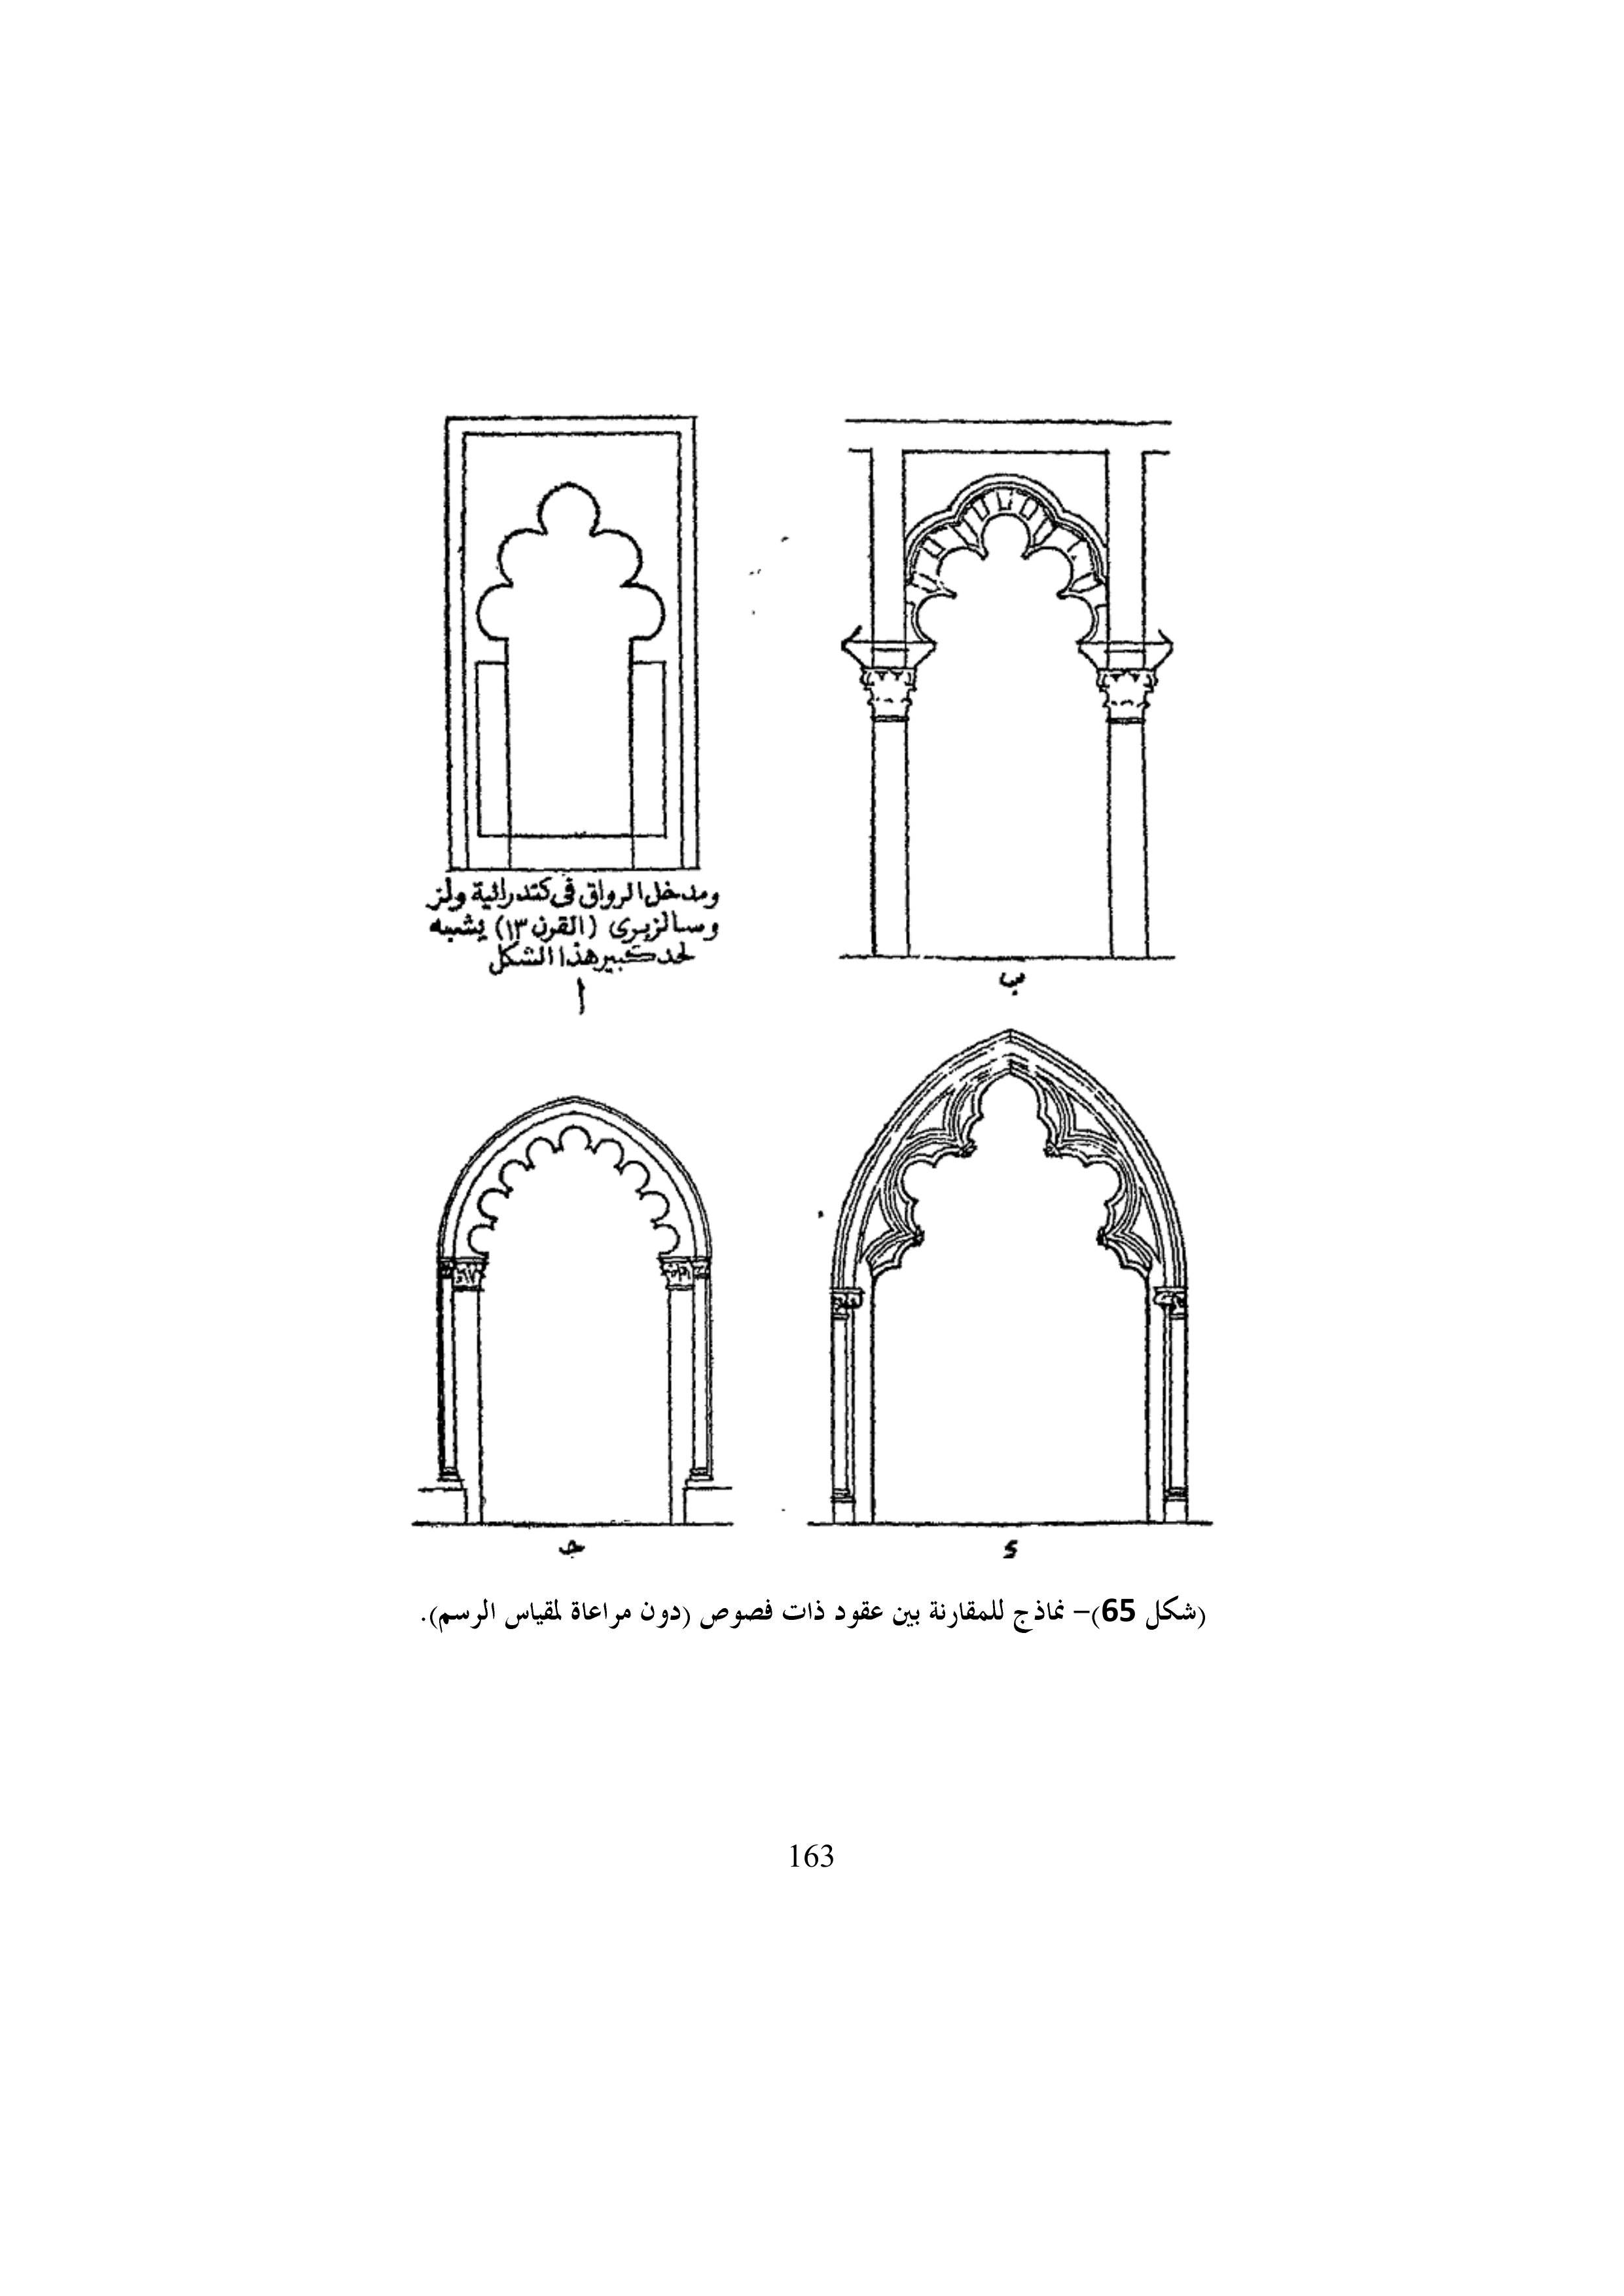 ومدخل الرواق فى كتدرائية ولز
وسالزبرى (القرن ١٣) يشبه
لحد كبير هذا الشكل
ا
ب
جـ
د
(شكل 65)– نماذج للمقارنة بين عقود ذات فصوص (دون مراعاة لمقياس الرسم).
163